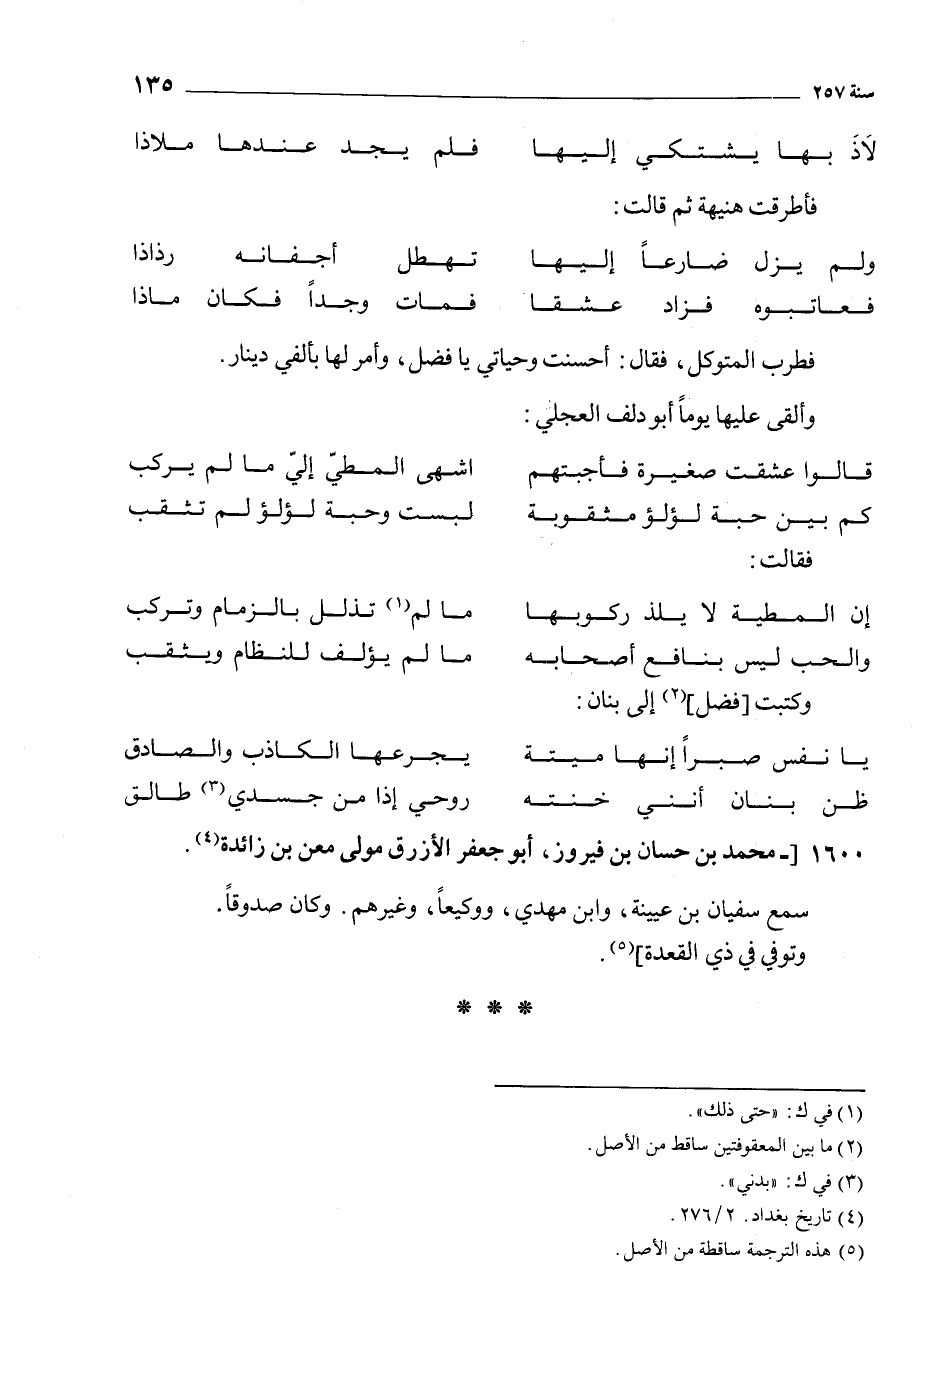 سنة ٢٥٧ ١٣٥
لَاذَ بها يشتكي إليها فلم يجد عندها ملاذا
فأطرقت هنيهة ثم قالت :
ولم يزل ضارعاً إليها تهطل أجفانه رذاذا
فعاتبوه فزاد عشقا فمات وجداً فكان ماذا
فطرب المتوكل، فقال : أحسنت وحياتي يا فضل، وأمر لها بألفي دينار.
وألقى عليها يوماً أبو دلف العجلي :
قالوا عشقت صغيرة فأجبتهم اشهى المطيّ إليّ ما لم يركب
كم بين حبة لؤلؤ مثقوبة لبست وحبة لؤلؤ لم تثقب
فقالت :
إن المطية لا يلذ ركوبها ما لم(١) تذلل بالزمام وتركب
والحب ليس بنافع أصحابه ما لم يؤلف للنظام ويثقب
وكتبت [فضل](٢) إلى بنان :
يا نفس صبراً إنها ميتة يجرعها الكاذب والصادق
ظن بنان أنني خنته روحي إذا من جسدي(٣) طالق
١٦٠٠ [ ـ محمد بن حسان بن فيروز، أبو جعفر الأزرق مولى معن بن زائدة(٤).
سمع سفيان بن عيينة، وابن مهدي، ووكيعاً، وغيرهم. وكان صدوقاً.
وتوفي في ذي القعدة](٥).
* * *
(١) في ك : «حتى ذلك».
(٢) ما بين المعقوفتين ساقط من الأصل.
(٣) في ك : «بدني».
(٤) تاريخ بغداد. ٢/ ٢٧٦.
(٥) هذه الترجمة ساقطة من الأصل.